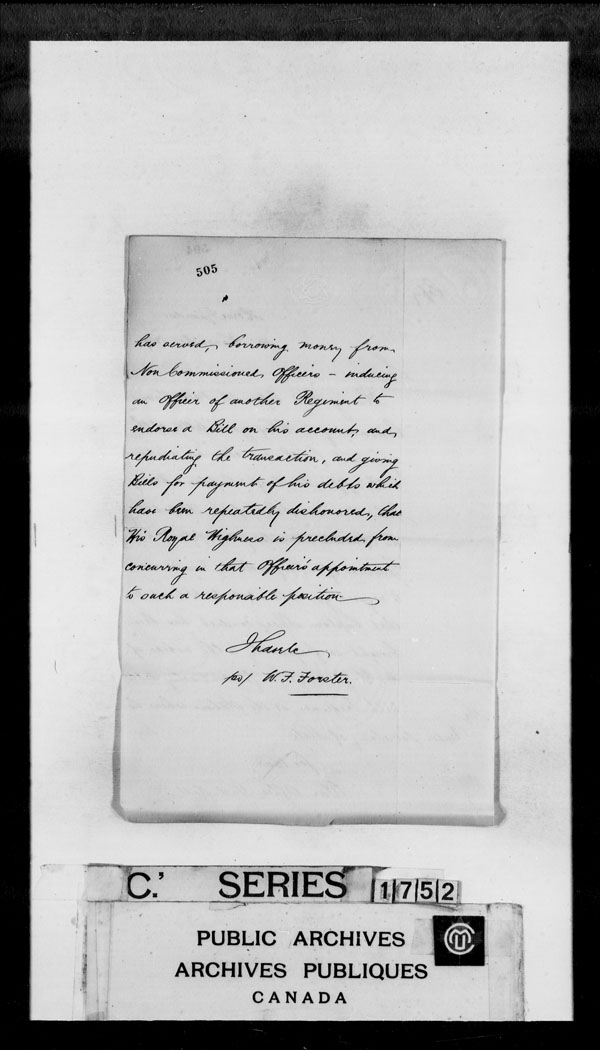 505
has served, borrowing money from
Non Commissioned Officers - inducing
an Officer of another Regiment to
endorse a Bill on his account, and,
repudiating the transaction, and giving
Bills for payment of his debts which
have been repeatedly dishonored, that
His Royal Highness is precluded from
concurring in that Officer's appointment
to such a responsible position
I have &c
W. F. Forster.
C.' SERIES 1752
PUBLIC ARCHIVES
ARCHIVES PUBLIQUES
CANADA